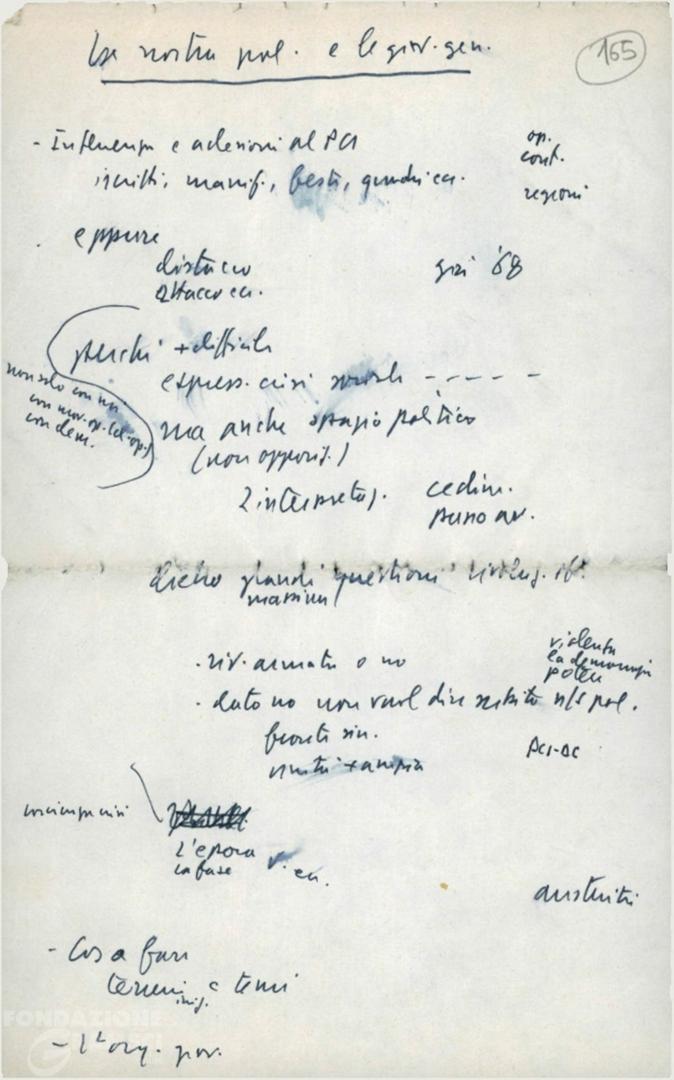 La nostra pol. e le giov. gen.
165
- Influenza e adesioni al PCI
op.
cont.
iscritti, manif., festi, quadri ecc.
regioni
eppure
distacco
già '68
attacco ecc.
perché + difficile
espress. crisi sociale - - - - -
non solo con noi
con mov. op. (cl. op.)
con dem.
ma anche spazio politico
(non opposiz.)
2 interpretaz. cedim.
dietro grandi questioni
massimi
- riv. armata o no
violenta
la democrazia
potere
- dato no non vuol dire subito n/s pol.
fronte sin.
PCI-DC
unità + ampia
L'epoca
la fase
ecc.
austerità
- Cosa fare
terreni e temi
- L'org. giov.
FONDAZIONE